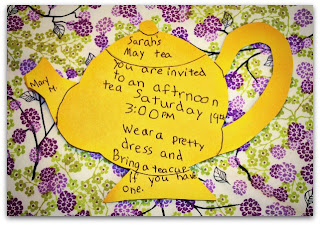 Sarahs
May tea
Mary
M.
You are invited
to an aftrnoon
tea Saturday 19th
3:00 PM
Wear a pretty
dress and
Bring a teacup
If you have
one.